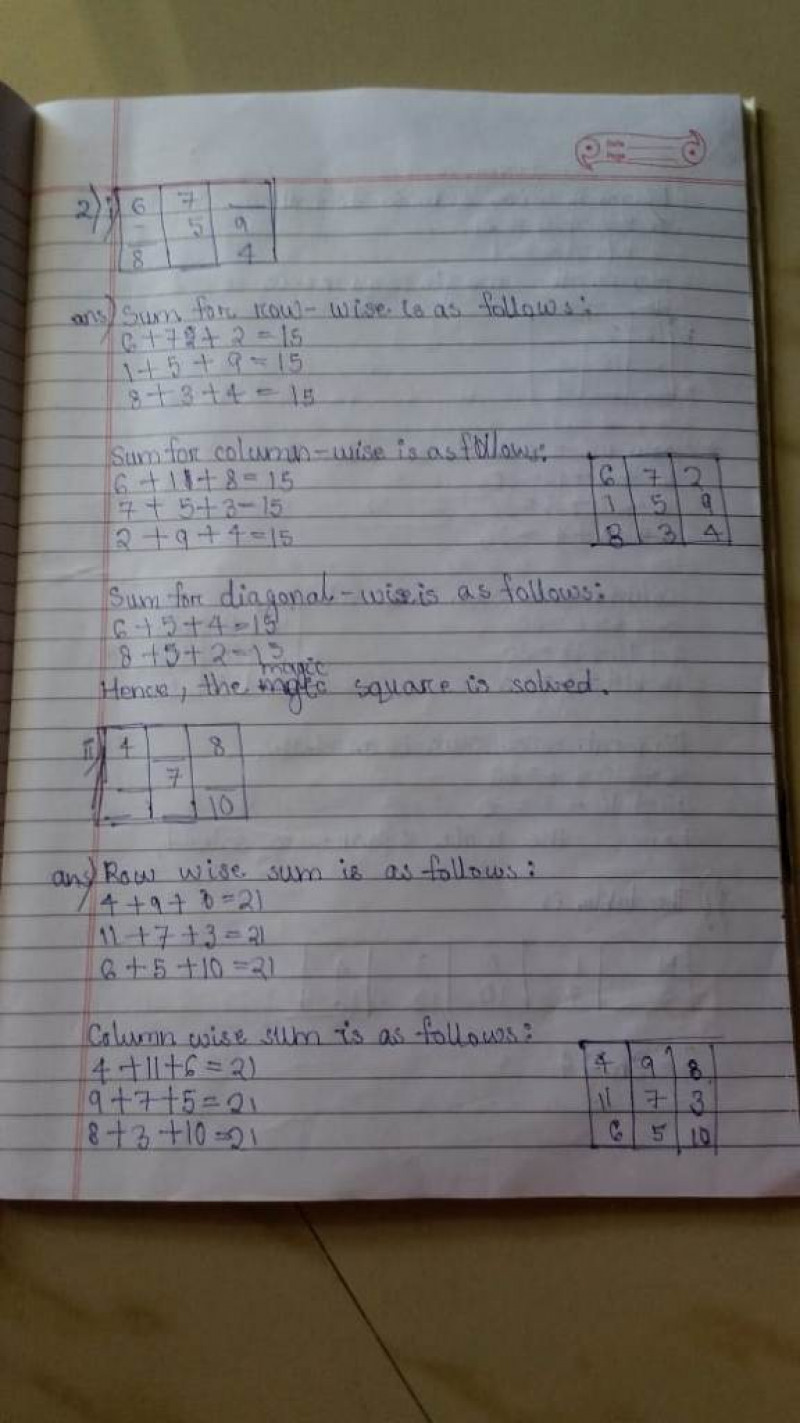 2) i) 6 7 _
_ 5 9
8 _ 4
ans) Sum for row-wise is as follows:
6+7+2=15
1+5+9=15
8+3+4=15
Sum for column-wise is as follows:
6+1+8=15
7+5+3=15
2+9+4=15
6 7 2
1 5 9
8 3 4
Sum for diagonal-wise is as follows:
6+5+4=15
8+5+2=15
Hence, the magic square is solved.
ii) 4 _ 8
_ 7 _
_ _ 10
ans) Row wise sum is as follows:
4+9+8=21
11+7+3=21
6+5+10=21
Column wise sum is as follows:
4+11+6=21
9+7+5=21
8+3+10=21
4 9 8
11 7 3
6 5 10